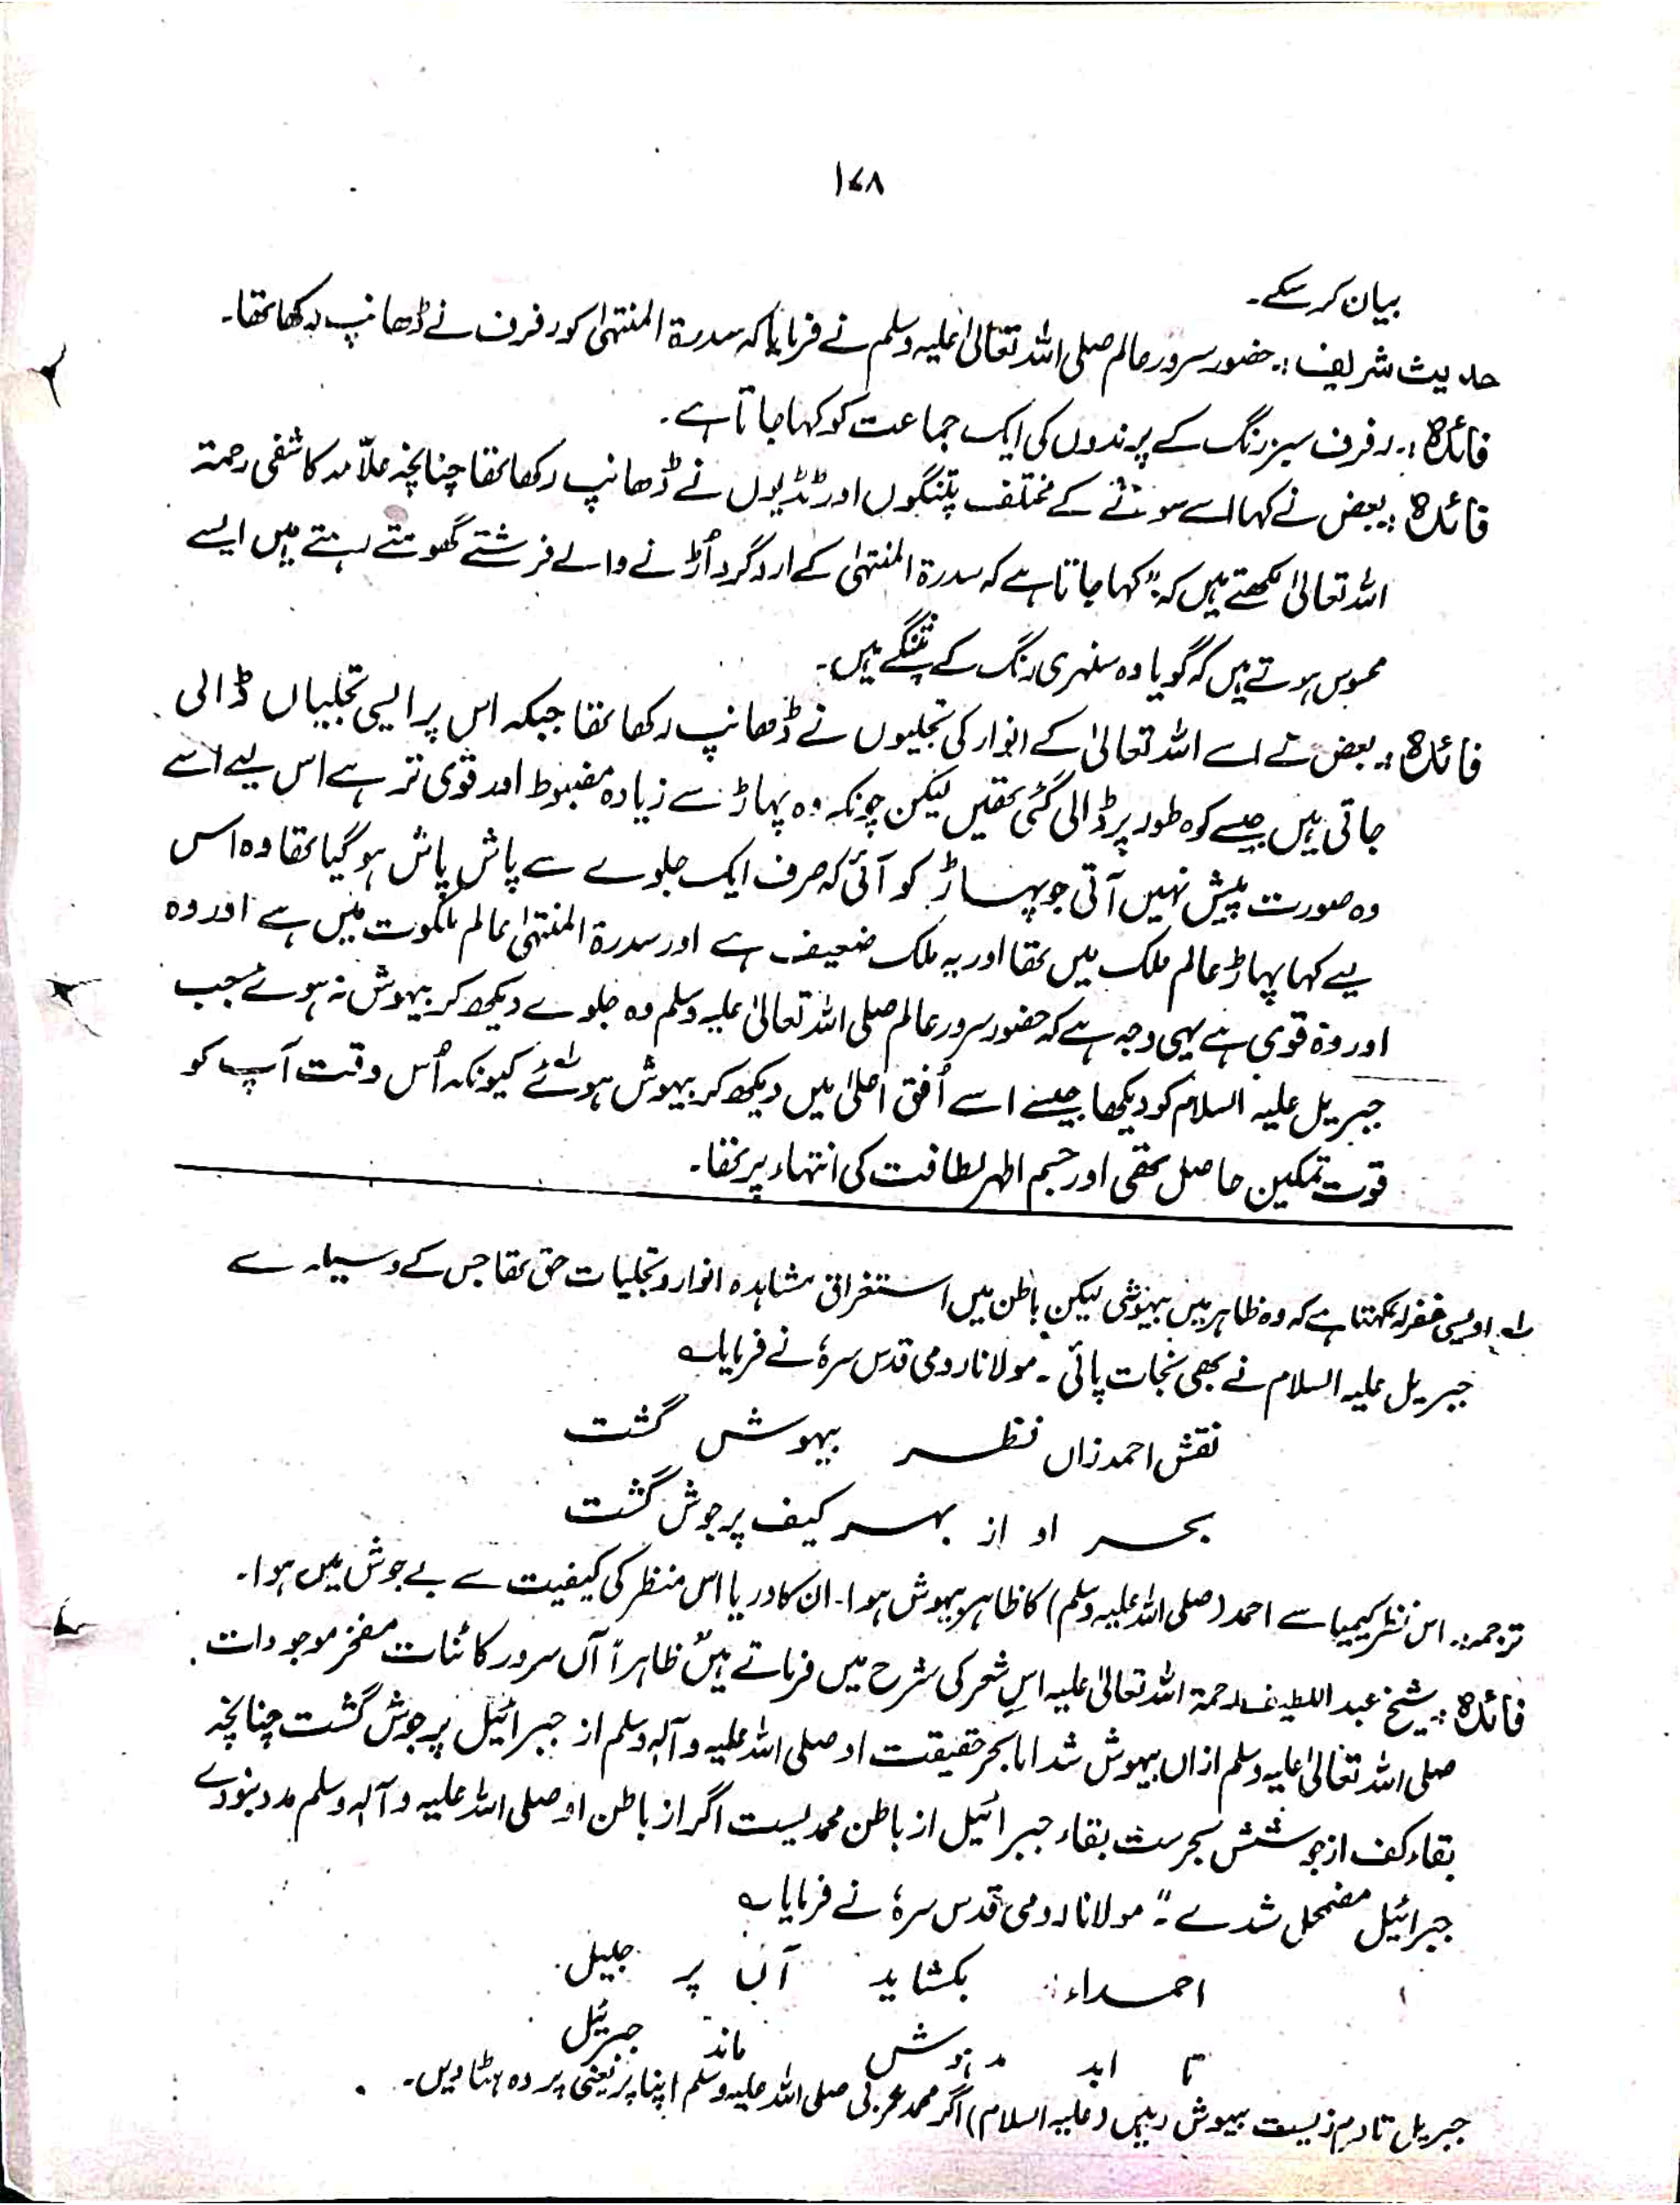 ۱۷۸
بیان کر سکے۔
حدیث شریف :۔ حضور سرور عالم صلی اللہ تعالیٰ علیہ وسلم نے فرمایا کہ سدرۃ المنتہیٰ کو رفرف نے ڈھانپ رکھا تھا۔
فائدہ :۔ رفرف سبز رنگ کے پرندوں کی ایک جماعت کو کہا جاتا ہے۔
فائدہ :۔ بعض نے کہا اسے سونے کے مختلف پتنگوں اور ٹڈیوں نے ڈھانپ رکھا تھا چنانچہ علاّمہ کاشفی رحمۃ
اللہ تعالیٰ لکھتے ہیں کہ " کہا جاتا ہے کہ سدرۃ المنتہیٰ کے ارد گرد اُڑنے والے فرشتے گھومتے رہتے ہیں ایسے
محسوس ہوتے ہیں کہ گویا وہ سنہری رنگ کے پتنگے ہیں۔
فائدہ :۔ بعض نے اسے اللہ تعالیٰ کے انوار کی تجلیوں نے ڈھانپ رکھا تھا جبکہ اس پر ایسی تجلیاں ڈالی
جاتی ہیں جیسے کوہ طور پر ڈالی گئی تھیں لیکن چونکہ وہ پہاڑ سے زیادہ مضبوط اور قوی تر ہے اس لیے اسے
وہ صورت پیش نہیں آتی جو پہاڑ کو آئی کہ صرف ایک جلوے سے پاش پاش ہو گیا تھا وہ اس
لیے کہا پہاڑ عالم ملک میں تھا اور یہ ملک ضعیف ہے اور سدرۃ المنتہیٰ عالم ملکوت میں ہے اور وہ
اور وہ قوی ہے یہی وجہ ہے کہ حضور سرور عالم صلی اللہ تعالیٰ علیہ وسلم وہ جلوے دیکھ کر بیہوش نہ ہوئے جب
جبریل علیہ السلام کو دیکھا جیسے اسے اُفق اعلیٰ میں دیکھ کر بیہوش ہوئے لہ کیونکہ اُس وقت آپ کو
قوت تمکین حاصل تھی اور جسم اطہر لطافت کی انتہاء پر تھا۔
لہ اویسی غفرلہ کہتا ہے کہ وہ ظاہر میں بیہوشی لیکن باطن میں استغراق مشاہدہ انوار و تجلیات حق تھا جس کے وسیلہ سے
جبریل علیہ السلام نے بھی نجات پائی ۔ مولانا رومی قدس سرہٗ نے فرمایا ؎
نقش احمد زاں نظر بیہوش گشت
بحر او از بہر کیف پرجوش گشت
ترجمہ:۔ اس نظر کیمیا سے احمد (صلی اللہ علیہ وسلم) کا ظاہر بیہوش ہوا۔ ان کا دریا اس منظر کی کیفیت سے بے جوش میں ہوا۔
فائدہ :۔ شیخ عبد اللطیف رحمۃ اللہ تعالیٰ علیہ اس شعر کی شرح میں فرماتے ہیں " ظاہراً آں سرور کائنات مفخر موجودات
صلی اللہ تعالیٰ علیہ وسلم ازاں بیہوش شد اما بحر حقیقت او صلی اللہ علیہ وآلہ وسلم از جبرائیل پرجوش گشت چنانچہ
بقاء کف از جوشش بحرست بقاء جبرائیل از باطن محمدیست اگر از باطن او صلی اللہ علیہ وآلہ وسلم مدد بنودے
جبرائیل مضمحل شدے ۔" مولانا رومی قدس سرہٗ نے فرمایا ؎
احمد ار بکشاید آں پر جلیل
تا ابد مدہوش ماند جبرئیل
جبریل تا دم زیست بیہوش رہیں (علیہ السلام) اگر محمد عربی صلی اللہ علیہ وسلم اپنا پر یعنی پردہ ہٹا دیں۔